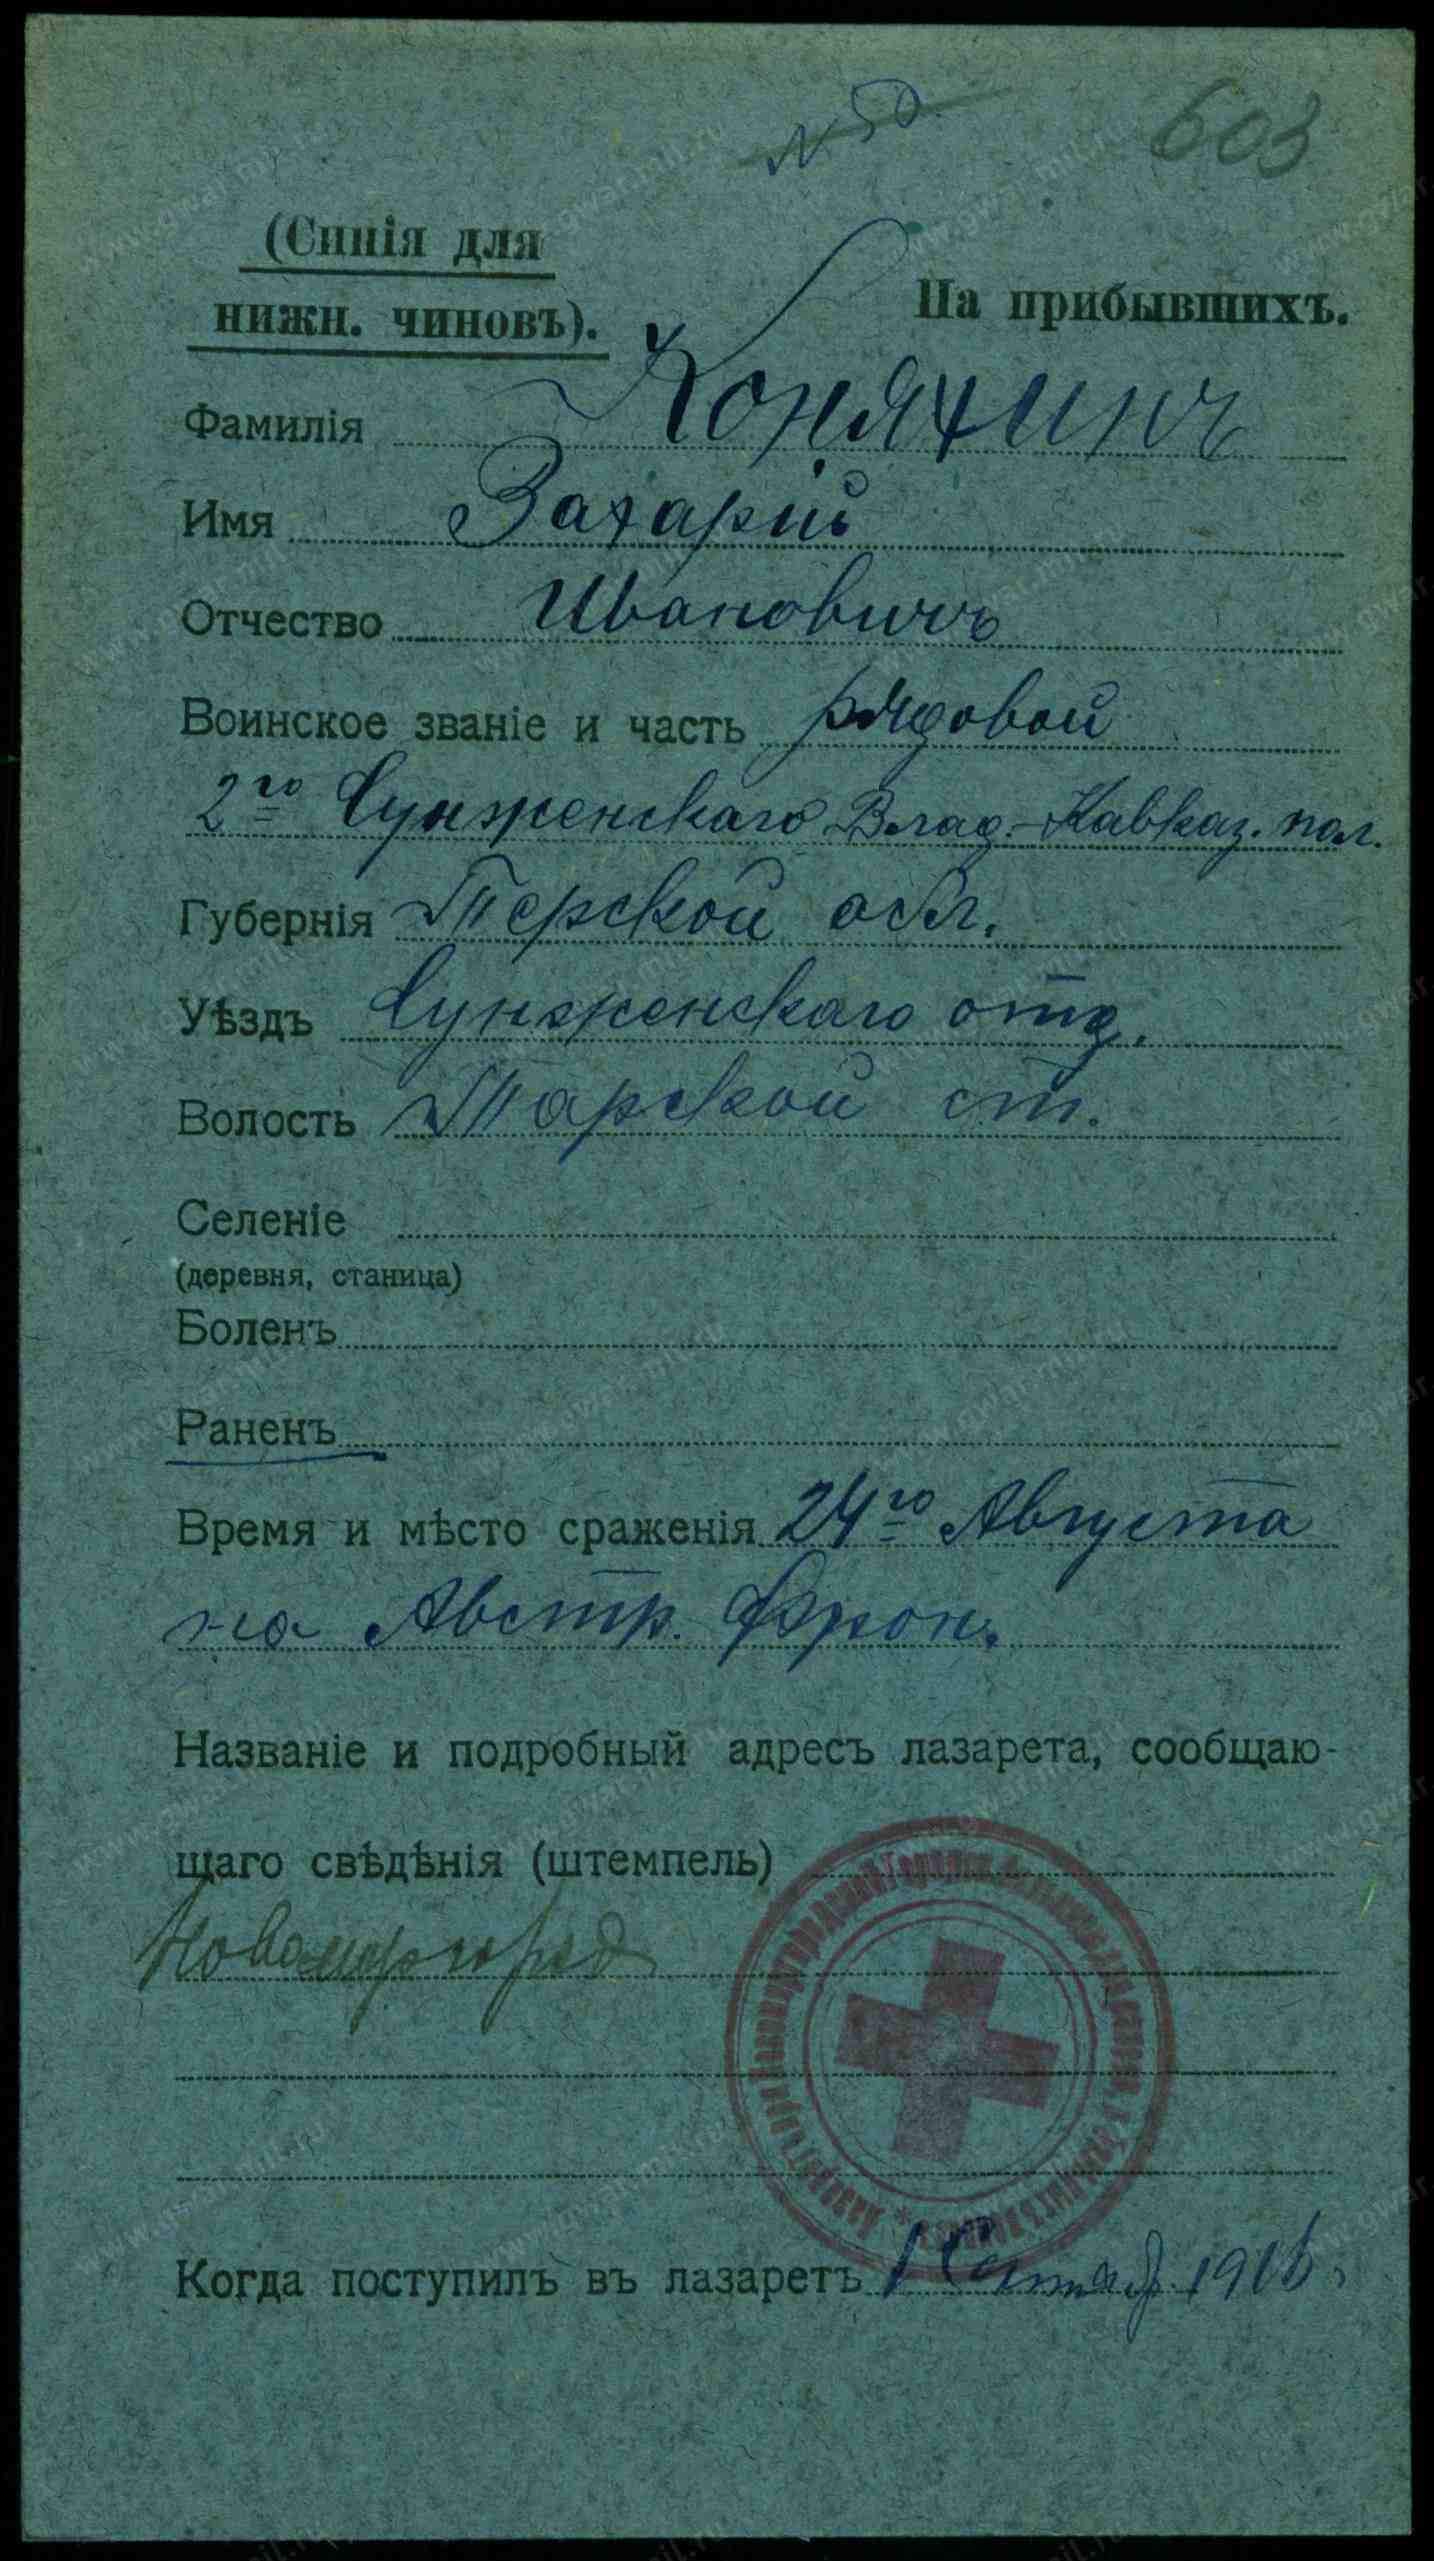 № 50
603
(Синія для
нижн. чиновъ).
На прибывшихъ.
Фамилія Коняхинъ
Имя Захарій
Отчество Ивановичъ
Воинское званіе и часть рядовой
2го Сунженскаго Влад.-Кавказ. пол.
Губернія Терской обл.
Уѣздъ Сунженскаго отд.
Волость Тарской ст.
Селеніе
(деревня, станица)
Боленъ
Раненъ
Время и мѣсто сраженія 24го Августа
на Австр. Фрон.
Названіе и подробный адресъ лазарета, сообщаю-
щаго свѣдѣнія (штемпель)
Новомиргород
Когда поступилъ въ лазаретъ 1 Сентяб. 1916
www.gwar.mil.ru